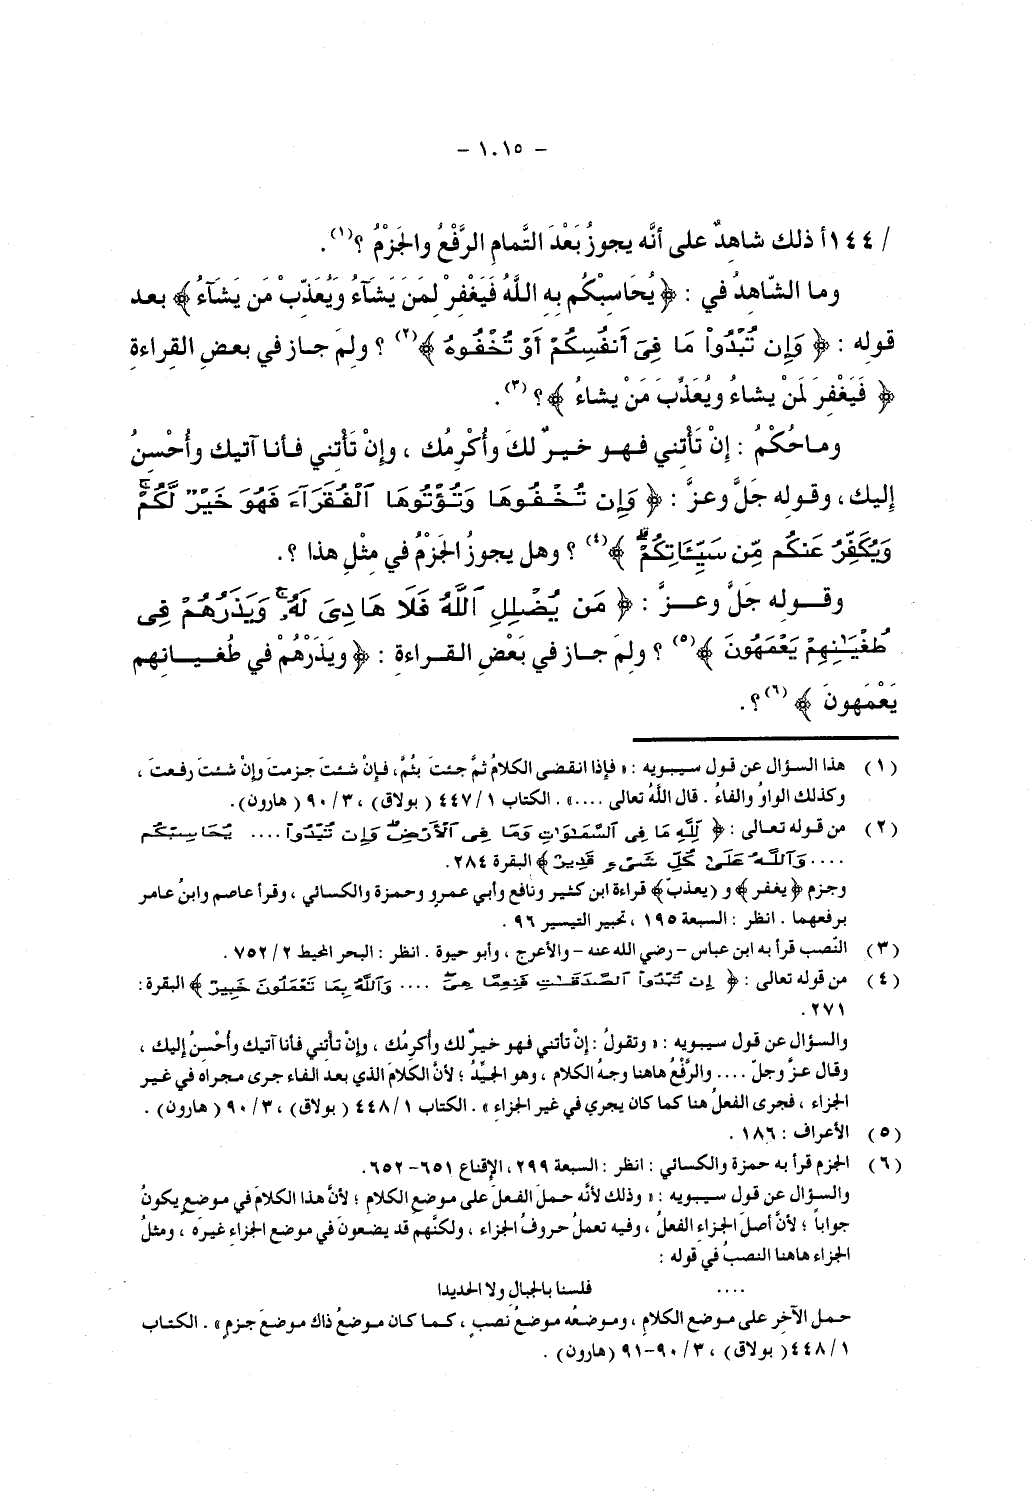 – ١٠١٥ –
/ ١٤٤أ ذلك شاهدٌ على أنَّه يجوزُ بَعْدَ التَّمامِ الرَّفْعُ والجَزْمُ ؟(١).
وما الشّاهدُ في : ﴿ يُحَاسِبْكُم بِهِ اللَّهُ فَيَغْفِرْ لِمَن يَشَآءُ وَيُعَذِّبْ مَن يَشَآءُ ﴾ بعد
قوله : ﴿ وَإِن تُبْدُواْ مَا فِىٓ أَنفُسِكُمْ أَوْ تُخْفُوهُ ﴾(٢) ؟ ولِمَ جـاز في بعضِ القراءةِ
﴿ فَيَغْفِرَ لمَنْ يشاءُ ويُعَذِّبَ مَنْ يشاءُ ﴾؟ (٣).
وماحُكْمُ : إنْ تَأْتني فـهـو خـيـرٌ لكَ وأُكْرِمُك ، وإنْ تَأْتِني فـأنـا آتيك وأُحْسِنُ
إليك، وقـولِه جَلَّ وعزَّ : ﴿ وَإِن تُـخْـفُـوهَا وَتُـؤْتُوهَا ٱلْـفُـقَرَآءَ فَهُوَ خَيْرٌ لَّكُمْ ۚ
وَيُكَفِّرُ عَنكُم مِّن سَيِّئَاتِكُمْ ۗ ﴾(٤) ؟ وهل يجوزُ الجَزْمُ في مثْلِ هذا ؟.
وقـــولِه جَلَّ وعـــزَّ : ﴿ مَن يُضْلِلِ ٱللَّهُ فَلَا هَادِىَ لَهُۥ ۚ وَيَذَرُهُمْ فِى
طُغْيَـٰنِهِمْ يَعْمَهُونَ ﴾(٥) ؟ ولِمَ جـاز في بَعْضِ القـراءةِ : ﴿ ويَذَرْهُمْ في طُغـيـانِهِم
يَعْمَهونَ ﴾ (٦)؟.
(١) هذا السؤال عن قول سيبويه : « فإذا انقضى الكلامُ ثمَّ جئتَ بثُمَّ، فـإنْ شئتَ جزمتَ وإنْ شئتَ رفعتَ ،
وكذلك الواوُ والفاءُ . قال اللَّهُ تعالى ....» . الكتاب ١ /٤٤٧ ( بولاق) ، ٣ / ٩٠ ( هارون).
(٢) من قـوله تعـالى : ﴿ لِلَّهِ مَا فِى ٱلسَّمَـٰوَٰتِ وَمَا فِى ٱلْأَرْضِ ۗ وَإِن تُبْدُواْ .... يُحَاسِبْكُم
.... وَٱللَّهُ عَلَىٰ كُلِّ شَىْءٍ قَدِيرٌ ﴾ البقرة ٢٨٤.
وجزم ﴿يغفر ﴾ و (يعذبْ﴾ قراءة ابن كثير ونافع وأبي عمرو وحمزة والكسائي ، وقرأ عاصم وابنُ عامر
برفعهما . انظر : السبعة ١٩٥ ، تحبير التيسير ٩٦ .
(٣) النّصب قرأ به ابن عباس – رضي الله عنه – والأعرج ، وأبو حيوة . انظر : البحر المحيط ٢ / ٧٥٢ .
(٤) من قوله تعالى : ﴿ إِن تُبْدُواْ ٱلصَّدَقَـٰتِ فَنِعِمَّا هِىَ ۖ .... وَٱللَّهُ بِمَا تَعْمَلُونَ خَبِيرٌ ﴾ البقرة :
٢٧١ .
والسؤال عن قول سيبويه : « وتقولُ : إنْ تأتني فهو خيرٌ لك وأكرمُك ، وإنْ تأتني فأنا آتيك وأحْسِنُ إليك ،
وقال عزَّ وجلّ .... والرَّفْعُ هاهنا وجهُ الكلام ، وهو الجيِّدُ ؛ لأنَّ الكلامَ الذي بعد الفاء جرى مـجراه في غـيـر
الجزاء ، فجرى الفعلُ هنا كما كان يجري في غير الجزاء » . الكتاب ١ /٤٤٨ ( بولاق) ، ٣ / ٩٠ ( هارون) .
(٥) الأعراف : ١٨٦ .
(٦) الجزم قرأ به حمزة والكسائي : انظر : السبعة ٢٩٩ ، الإقناع ٦٥١– ٦٥٢.
والسؤال عن قول سيبويه : « وذلك لأنَّه حملَ الفعلَ على موضعِ الكلام ؛ لأنَّ هذا الكلامَ في موضعٍ يكونُ
جواباً ؛ لأنَّ أصلَ الجزاءِ الفعلُ ، وفيه تعملُ حروفُ الجزاء ، ولكنَّهم قد يضعون في موضع الجزاءِ غيرَه ، ومثلُ
الجزاء هاهنا النصبُ في قوله :
.... فلسنا بالجبال ولا الحديدا
حمل الآخرِ على موضع الكلامِ ، وموضعُه موضعُ نَصبٍ ، كـمـا كان موضعُ ذاك موضعَ جزمٍ » . الكتاب
١ /٤٤٨( بولاق) ، ٣ / ٩٠–٩١ (هارون) .